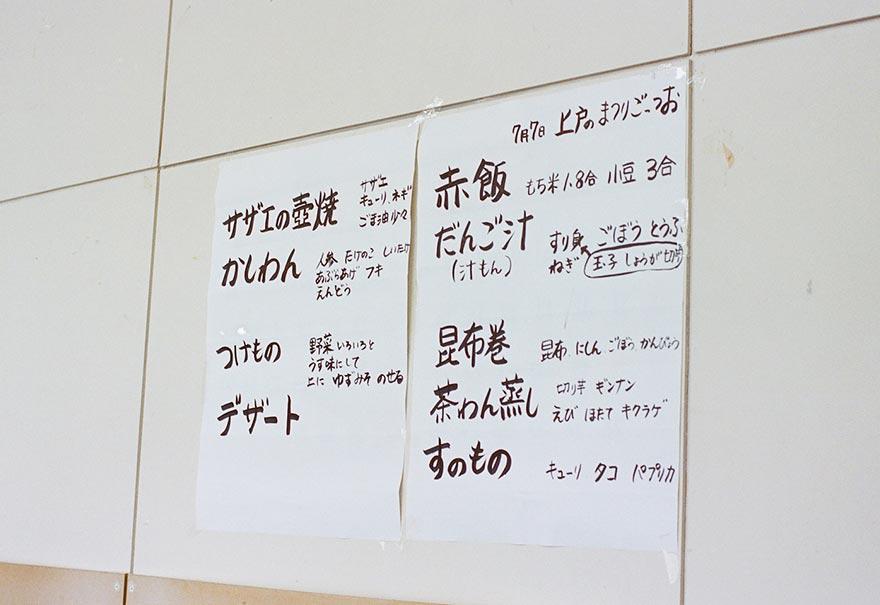 7月7日 上戸のまつりごっつお
赤飯 もち米1.8合 小豆 3合
だんご汁 すり身 ごぼう とうふ
(汁もん) ねぎ 玉子 しょうが
昆布巻 昆布、にしん、ごぼう、かんぴょう
茶わん蒸し 切り芋 ギンナン
えび ほたて キクラゲ
すのもの キューリ タコ パプリカ
サザエの壺焼 サザエ
キューリ、ネギ
ごま油少々
かしわん 人参 たけのこ しいたけ
あぶらあげ フキ
えんどう
つけもの 野菜いろいろと
うす味にして
上に ゆずみそ のせる
デザート